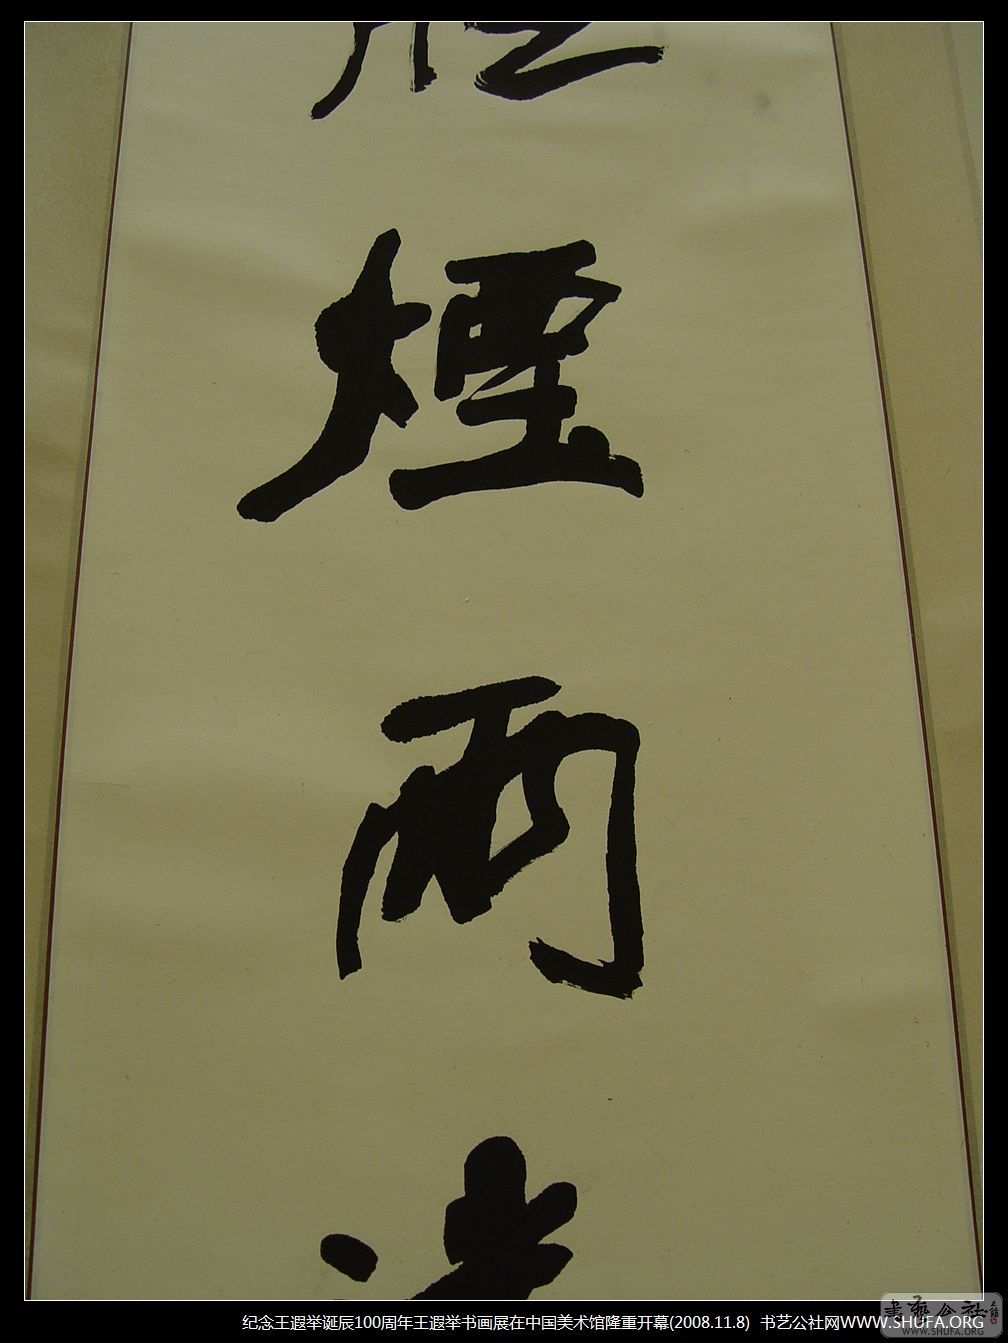 煙
雨
纪念王遐举诞辰100周年王遐举书画展在中国美术馆隆重开幕(2008.11.8) 书艺公社网WWW.SHUFA.ORG
书艺公社
WWW.SHUFA.ORG